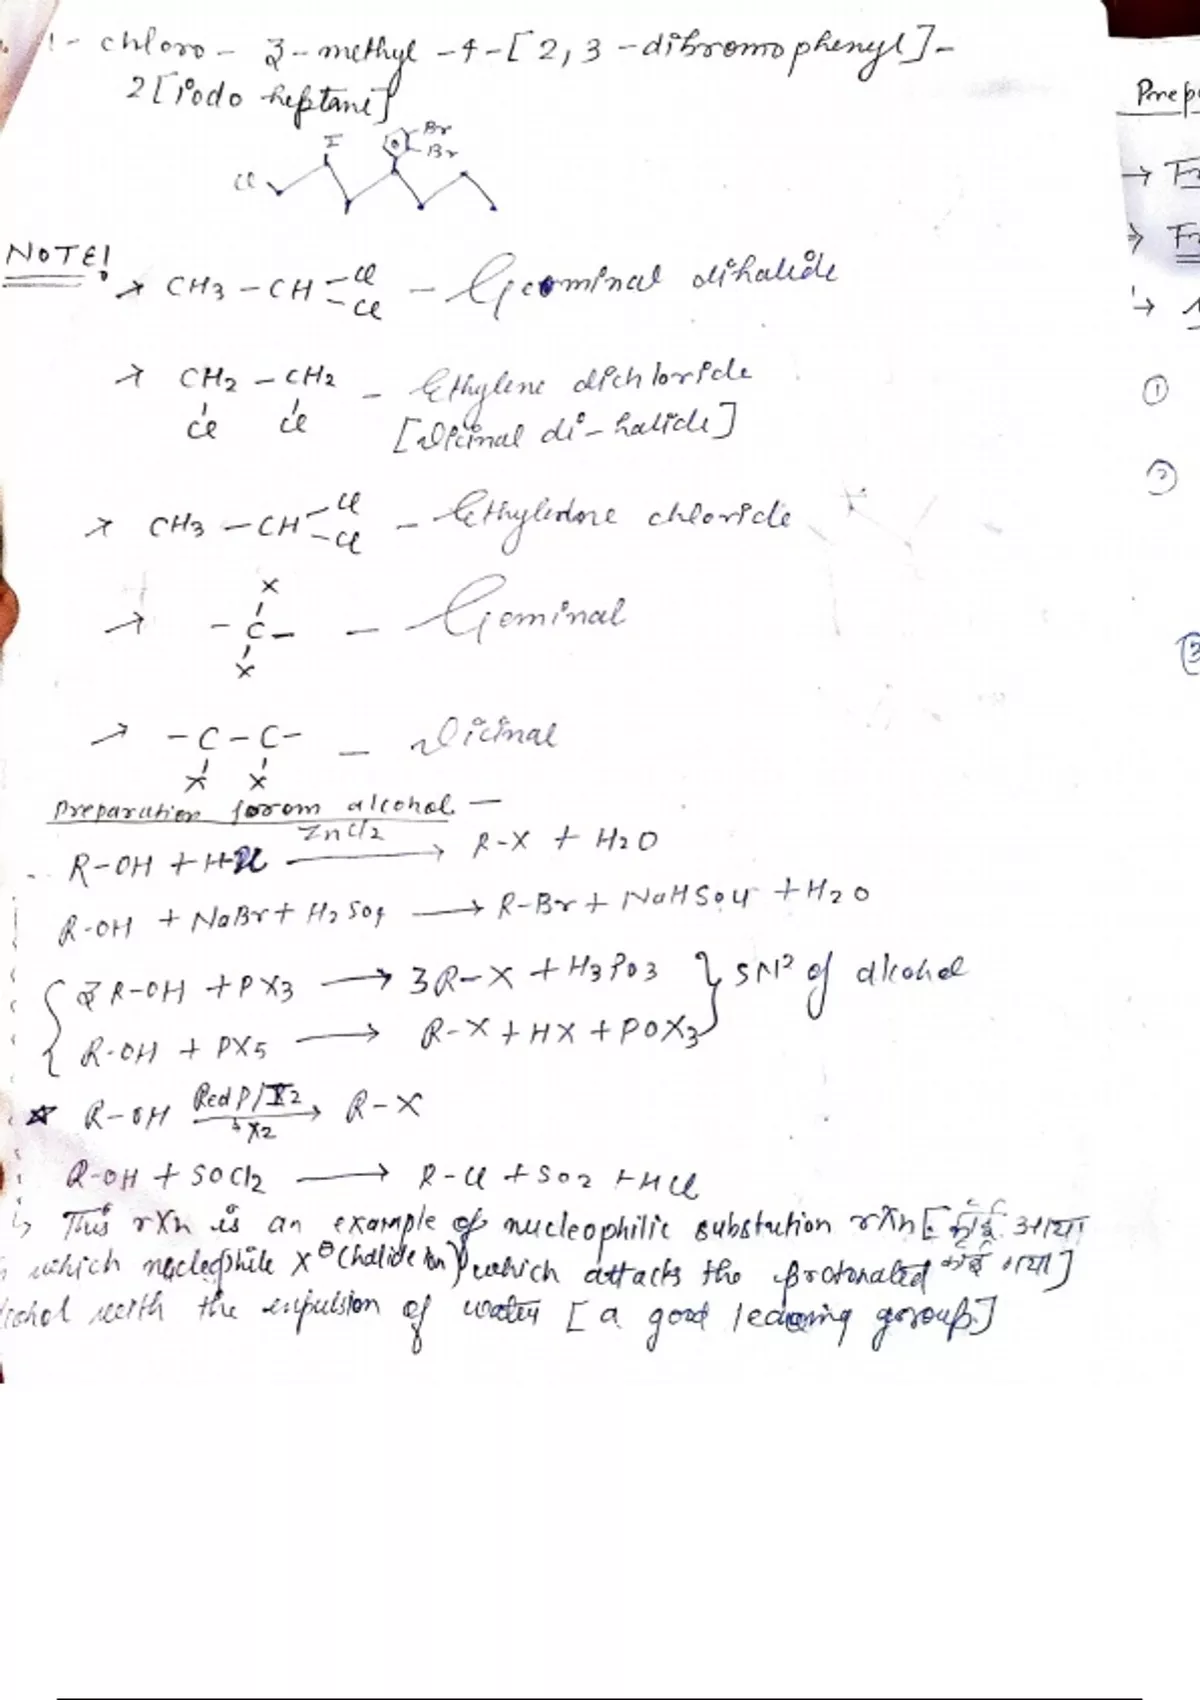 1- chloro - 3-methyl -4-[2,3-dibromophenyl]-
2[iodo heptane]
I
Br
Br
Cl
NOTE!
→ CH3 - CH - Cl - Geominal dihalide
- Cl
→ CH2 - CH2 - Ethylene dichloride
Cl Cl [Vicinal di-halide]
→ CH3 - CH - Cl - Ethylidone chloride
- Cl
X
→ - C - - Geminal
X
→ - C - C - - Vicinal
X X
Preparation forom alcohol -
R-OH + HX ZnCl2 → R-X + H2O
R-OH + NaBr + H2SO4 → R-Br + NaHSO4 + H2O
3 R-OH + PX3 → 3R-X + H3PO3 } SN2 of alcohol
R-OH + PX5 → R-X + HX + POX3
☆ R-OH Red P/X2 → R-X
X2
R-OH + SOCl2 → R-Cl + SO2 + HCl
This rXn is an example of nucleophilic substution rXn [कोई आया
which nucleophile X⊖ (halide ion) which attacks the protonated कोई गया]
with the expulsion of water [a good leaving goroup]
Prep
→ Fr
→ Fr
→
①
②
③